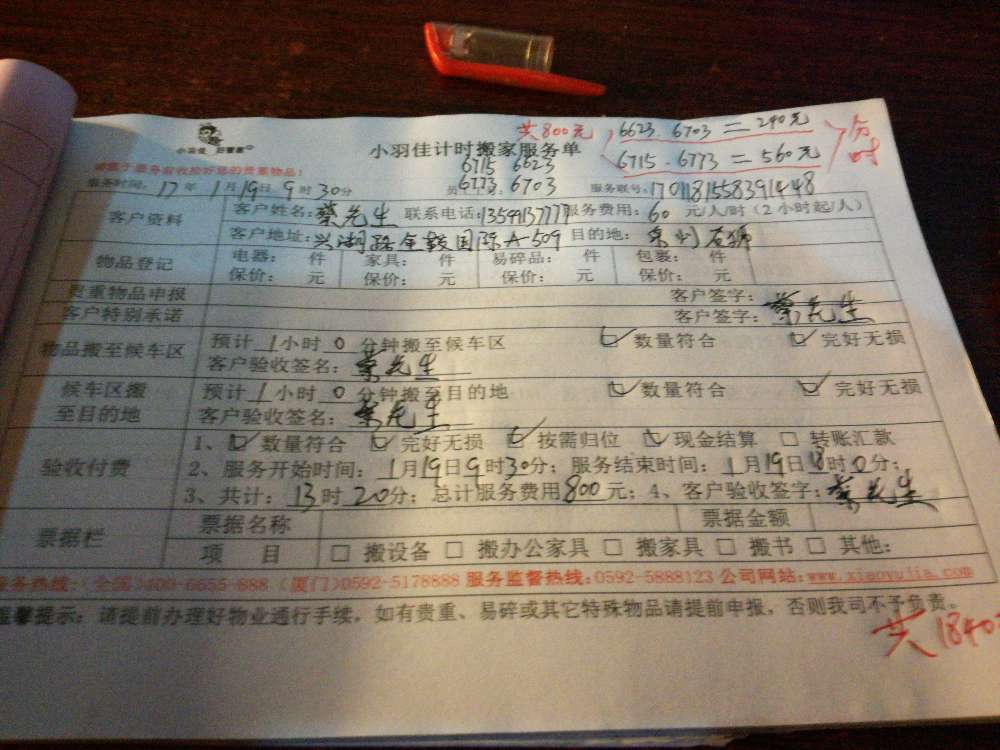 小羽佳 好管家
共800元
6623.6703=240元
6715.6773=560元
分时
小羽佳计时搬家服务单
6715 6623
6773.6703
服务时间：17年1月19日9时30分
服务联号：1701181558391448
客户资料
客户姓名：蔡先生 联系电话：13599137777 服务费用：60 元/人/时（2小时起/人）
客户地址：兴湖路金毅国际A-509 目的地：泉州石狮
物品登记
电器： 件 家具： 件 易碎品： 件 包裹： 件
保价： 元 保价： 元 保价： 元 保价： 元
贵重物品申报 客户签字：蔡先生
客户特别承诺 客户签字：
物品搬至候车区
预计1小时0分钟搬至候车区 数量符合 完好无损
客户验收签名：蔡先生
候车区搬至目的地
预计1小时0分钟搬至目的地 数量符合 完好无损
客户验收签名：蔡先生
验收付费
1、数量符合 完好无损 按需归位 现金结算 转账汇款
2、服务开始时间：1月19日9时30分；服务结束时间：1月19日18时0分；
3、共计：13时20分；总计服务费用800元；4、客户验收签字：蔡先生
票据栏
票据名称 票据金额
项 目 搬设备 搬办公家具 搬家具 搬书 其他：
服务热线：（全国）400-6655-888（厦门）0592-5178888 服务监督热线：0592-5888123 公司网站：www.xiaoyujia.com
温馨提示：请提前办理好物业通行手续，如有贵重、易碎或其它特殊物品请提前申报，否则我司不予负责。
共1840